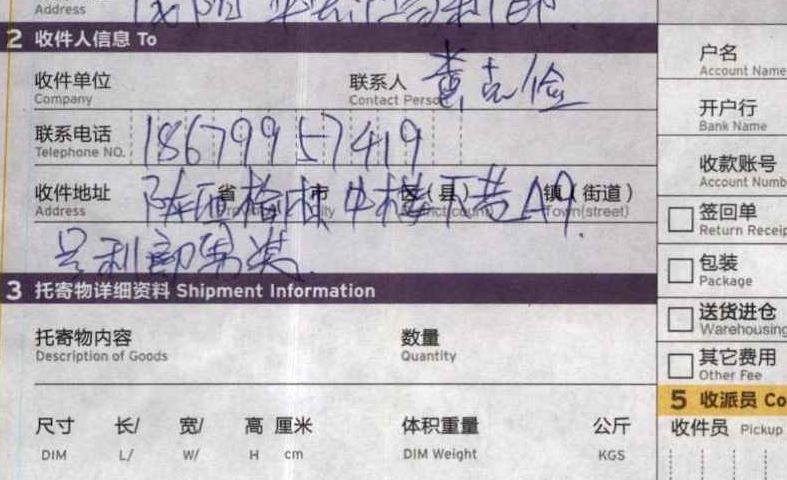 Address
2 收件人信息 To
收件单位
Company
联系人
Contact Person
联系电话 18679957419
Telephone NO.
收件地址 陕西 省 市 中楼 区(县) 下巷 A9 镇(街道)
Address Province City District county Town(street)
号利郎男装
3 托寄物详细资料 Shipment Information
托寄物内容 数量
Description of Goods Quantity
尺寸 长/ 宽/ 高 厘米 体积重量 公斤
DIM L/ W/ H cm DIM Weight KGS
户名
Account Name
开户行
Bank Name
收款账号
Account Numb
签回单
Return Receip
包装
Package
送货进仓
Warehousing
其它费用
Other Fee
5 收派员 Co
收件员 Pickup